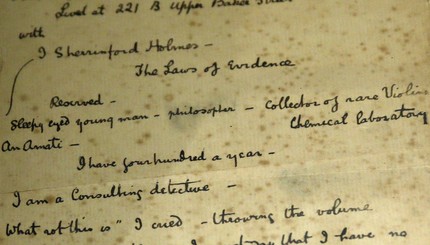 Lived at 221 B Upper Baker Street
with
I Sherrinford Holmes –
The Laws of Evidence
Reserved –
Sleepy eyed young man – philosopher – Collector of rare Violins
An Amati – Chemical laboratory
I have four hundred a year –
I am a Consulting detective –
What rot this is" I cried – throwing the volume
that I have no